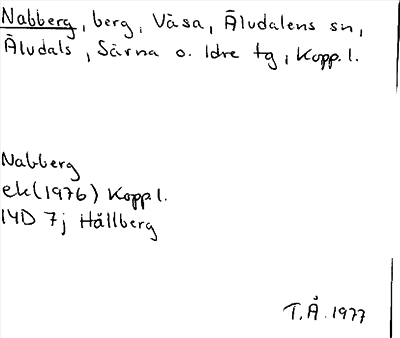 Nabberg, berg, Våsa, Äludalens sn,
Äludals, Särna o. Idre tg, Kopp. l.
Nabberg
ek (1976) Kopp l.
14D 7j Hållberg
T.Å. 1977